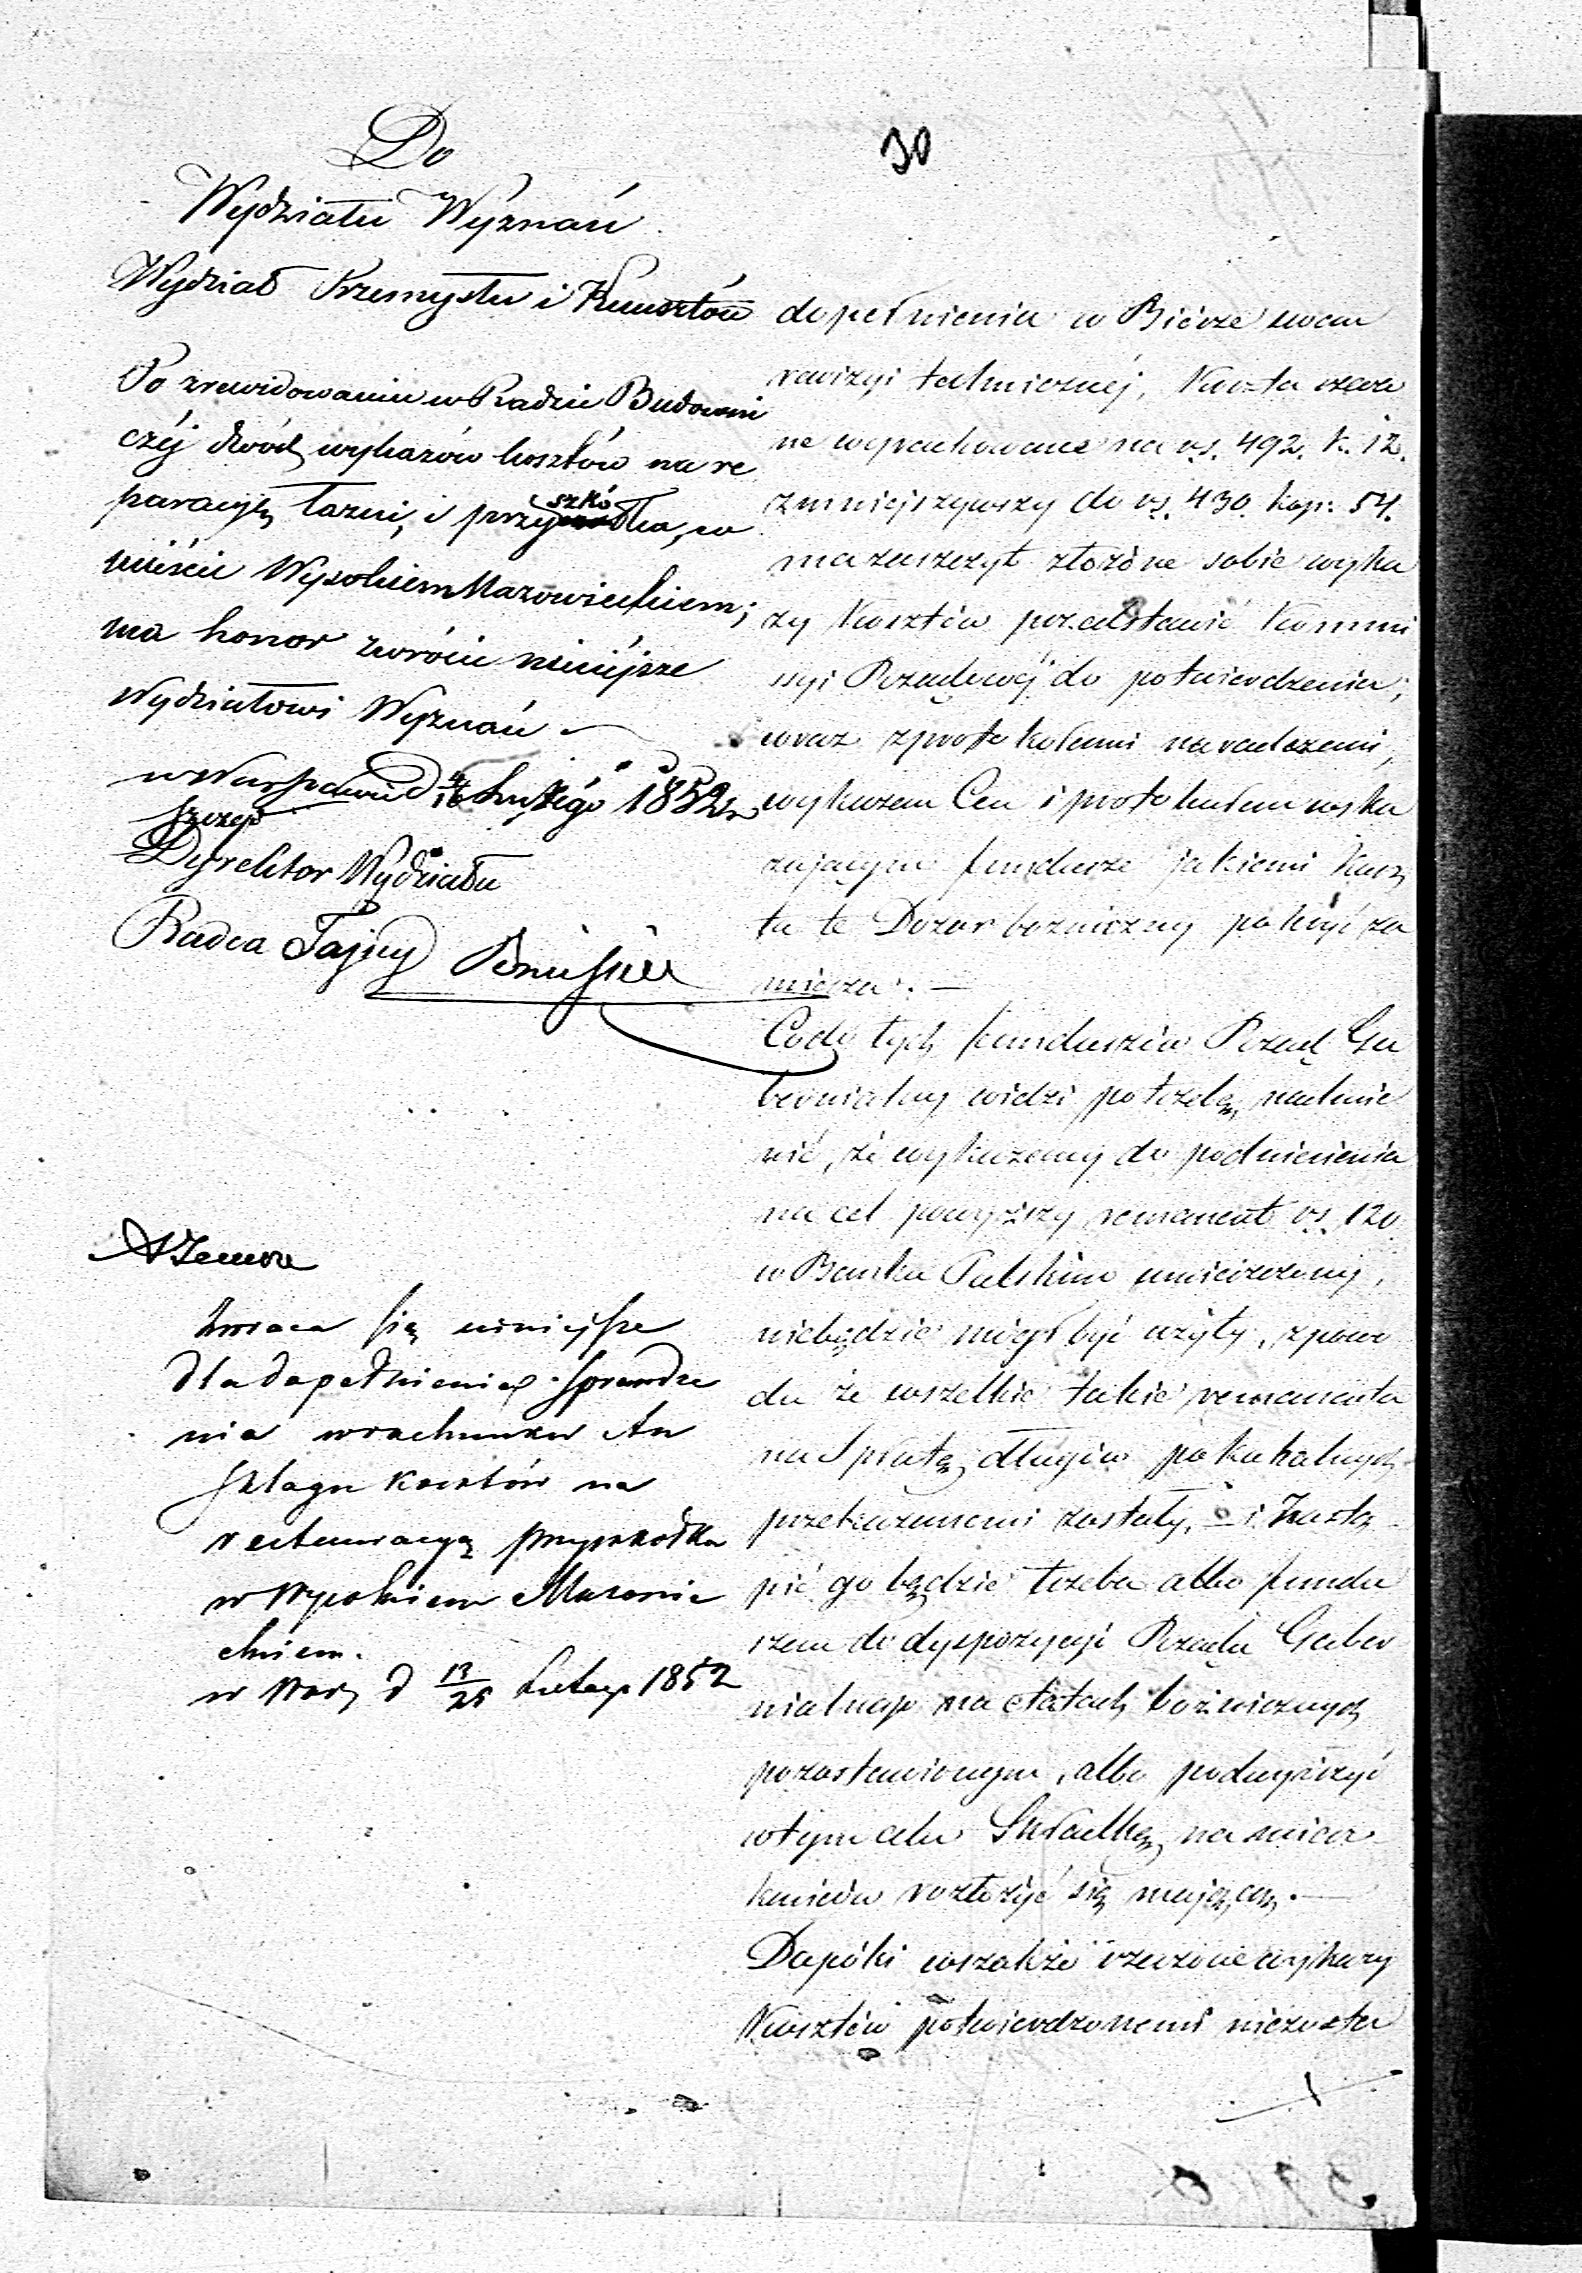 30
Do
Wydziału Wyznań
Wydział Przemysłu i Kunsztów
Po zrewidowaniu w Radzie Budowni
czéj dwóch wykazów kosztów na re
paracyę łazni, i przyszkółka, w
mieście Wysokiem Mazowieckiem;
ma honor zwrócić niniejsze
Wydziałowi Wyznań
w Warszawie d 4/16 Lutégo 1852 r.
Dyrektor Wydziału
Radca Tajny
Zwraca się niniejsze
dla dopełnienia sprawdze
nia w rachunku An
szlagu kosztów na
restauracyą przyszkółka
w Wysokiem Mazowie
ckiem.
w Warsz d 13/25 Lutego 1852
dopełnienia w Biórze swem
rewizyi technicznéj, Koszta rzeczo
ne wyrachowane na rs. 492. k. 12.
zmniejszywszy do rs. 430. kop. 54.
ma zaszczyt złożone sobie wyka
zy Kosztów przedstawić Kommi
ssyi Rządowéj do potwierdzenia;
wraz z protokołami naradczemi,
wykazem Cen i protokułem wska
zującym fundusze jakiemi Kosz
ta te Dozór bożniczny pokryć za
mierza. —
Co do tych funduszów Rząd Gu
bernialny widzi potrzebę nadmie
nić, że wykazany do podniesienia
na cel powyższy remanent rs. 120
w Banku Polskim umieszczony,
niebędzie mógł być użyty, z powo
du że wszelkie takie remanenta
na Spłatę długów pokahalnych
przekazanemi zostały, — i Zastą
pić go będzie trzeba albo fundu
szem do dyspozycyi Rządu Guber
nialnego na etatach bożnicznych
pozostawionym, albo podwyższyć
w tym celu Składkę na miesz
kańców rozłożyć się mającą. —
Dopóki wszakże rzeczone wykazy
Kosztów potwierdzonemi niezosta